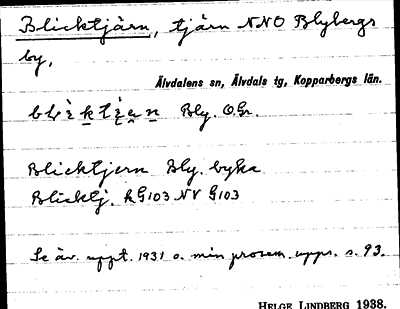 Blicktjärn, tjärn NNO Blybergs
by.
Älvdalens sn, Älvdals tg, Kopparbergs län.
Bly. O.Gr.
Blicktjern Bly. byka
Blicktj. kG103 NV G103
Se äv. uppt. 1931 o. min prosem. upps. s. 93.
HELGE LINDBERG 1938.